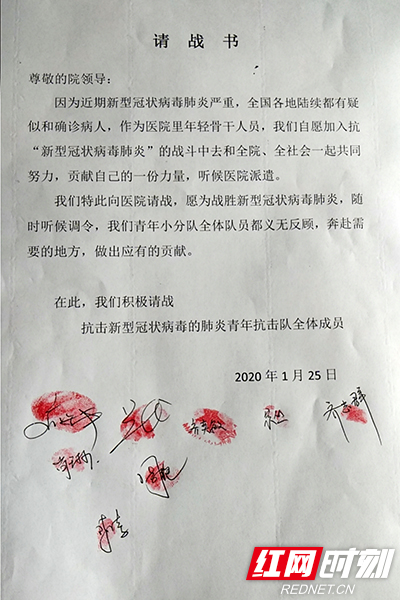 请 战 书
尊敬的院领导：
因为近期新型冠状病毒肺炎严重，全国各地陆续都有疑
似和确诊病人，作为医院里年轻骨干人员，我们自愿加入抗
“新型冠状病毒肺炎”的战斗中去和全院、全社会一起共同
努力，贡献自己的一份力量，听候医院派遣。
我们特此向医院请战，愿为战胜新型冠状病毒肺炎，随
时听候调令，我们青年小分队全体队员都义无反顾，奔赴需
要的地方，做出应有的贡献。
在此，我们积极请战
抗击新型冠状病毒的肺炎青年抗击队全体成员
2020 年 1 月 25 日
红网时刻
REDNET.CN